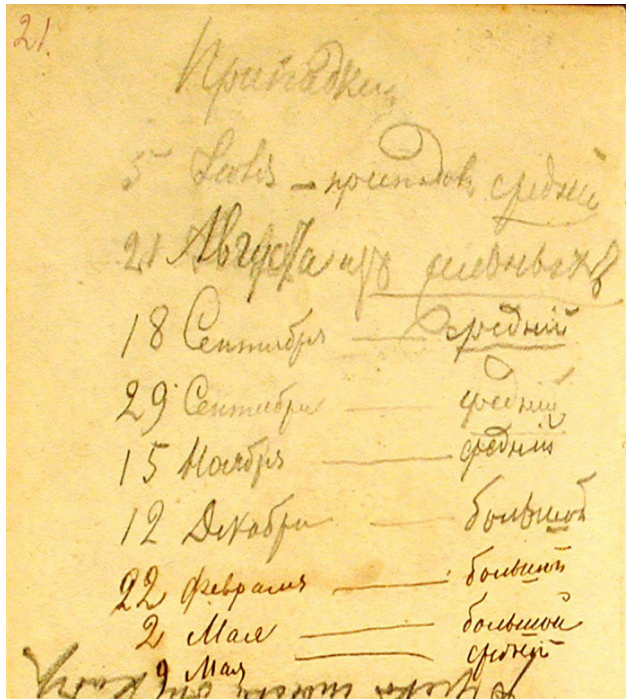 21.
Припадки
5 Іюля – припадокъ средній
21 Августа изъ сильныхъ
18 Сентября — средній
29 Сентября — средній
15 Ноября — средній
12 Декабря — большой
22 Февраля — большой
2 Мая — большой
9 Мая — средній